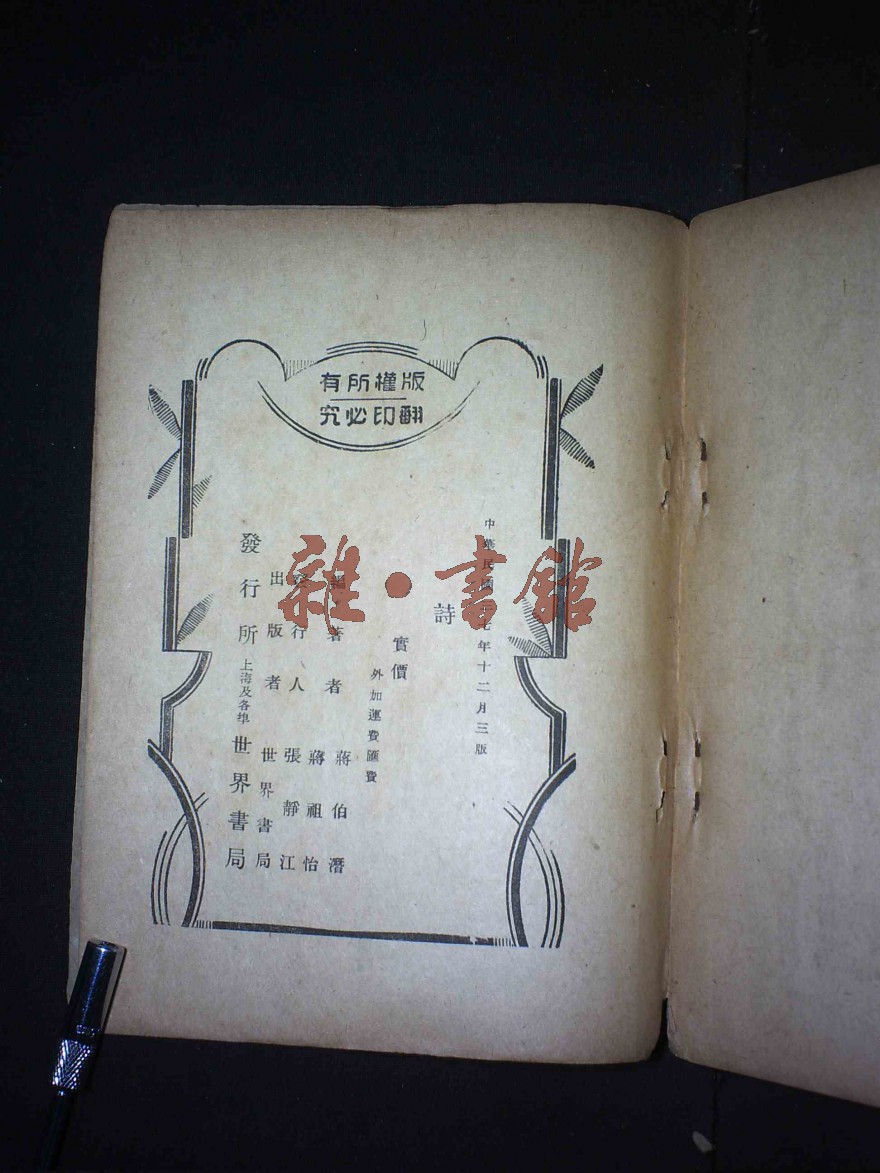 版權所有
翻印必究
中華民國三十七年十二月三版
詩
實價
外加運費匯費
編著者 蔣伯潛
蔣祖怡
發行人 張靜江
出版者 世界書局
發行所 上海及各埠 世界書局
雜·書館